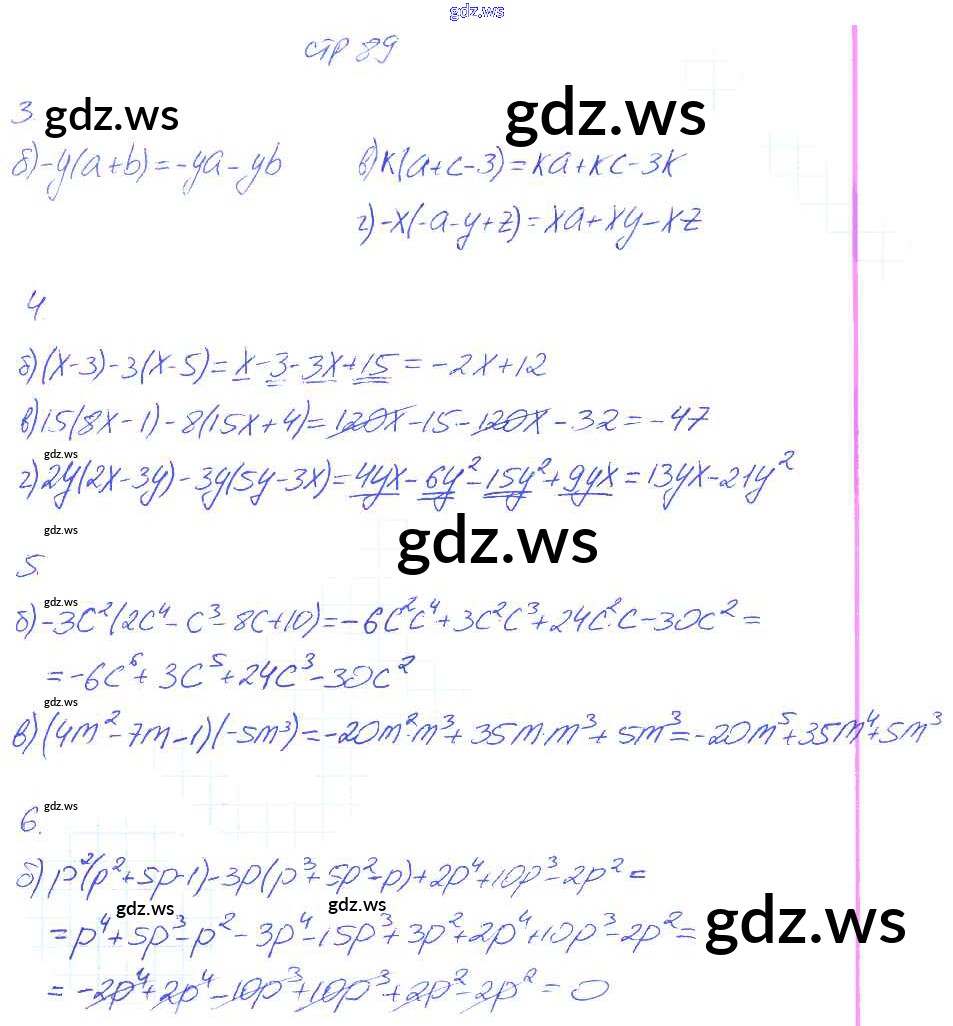 gdz.ws
стр 89
3.
gdz.ws
gdz.ws
б) -y(a+b) = -ya - yb
в) k(a+c-3) = ka+kc-3k
г) -x(-a-y+z) = xa+xy-xz
4.
б) (x-3)-3(x-5) = x-3-3x+15 = -2x+12
в) 15(8x-1)-8(15x+4) = 120x-15-120x-32 = -47
gdz.ws
г) 2y(2x-3y)-3y(5y-3x) = 4yx-6y²-15y²+9yx = 13yx-21y²
gdz.ws
gdz.ws
5.
gdz.ws
б) -3c²(2c⁴-c³-8c+10) = -6c²c⁴+3c²·c³+24c²·c-30c² =
= -6c⁶+3c⁵+24c³-30c²
gdz.ws
в) (4m²-7m-1)(-5m³) = -20m²·m³+35m·m³+5m³ = -20m⁵+35m⁴+5m³
gdz.ws
6.
б) p²(p²+5p-1)-3p(p³+5p²-p)+2p⁴+10p³-2p² =
gdz.ws
gdz.ws
gdz.ws
= p⁴+5p³-p²-3p⁴-15p³+3p²+2p⁴+10p³-2p² =
= -2p⁴+2p⁴-10p³+10p³+2p²-2p² = 0